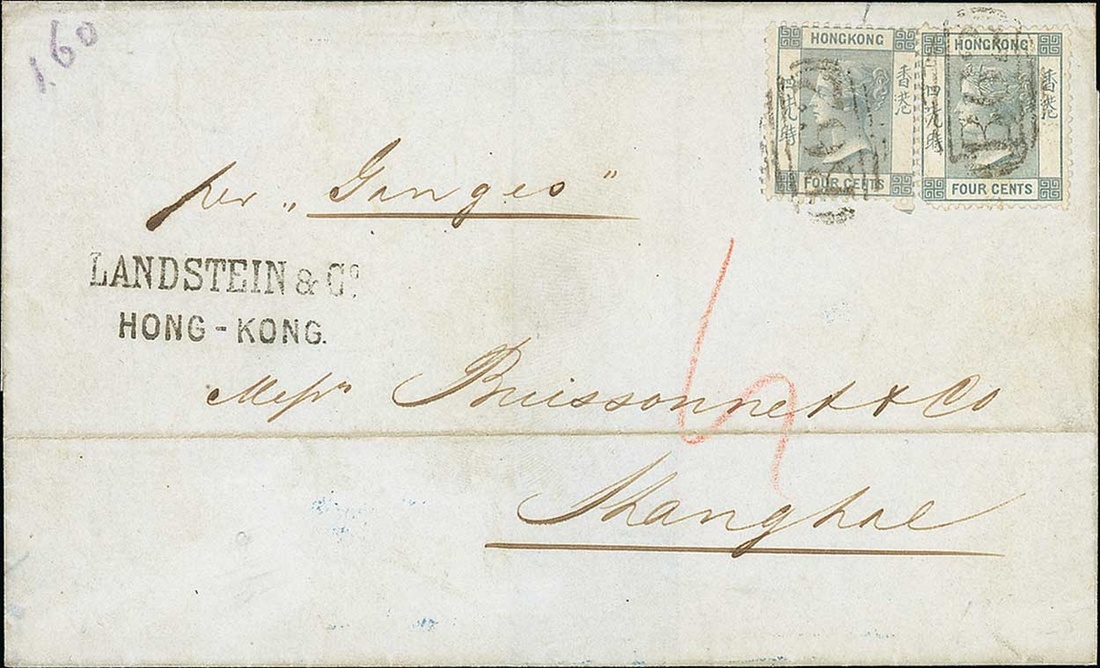 1.60
HONGKONG
香港
四先時
FOUR CENTS
B62
HONGKONG
香港
四先時
FOUR CENTS
B62
per „Ganges"
LANDSTEIN & Co.
HONG-KONG.
Messrs Buissonnet & Co
Shanghae